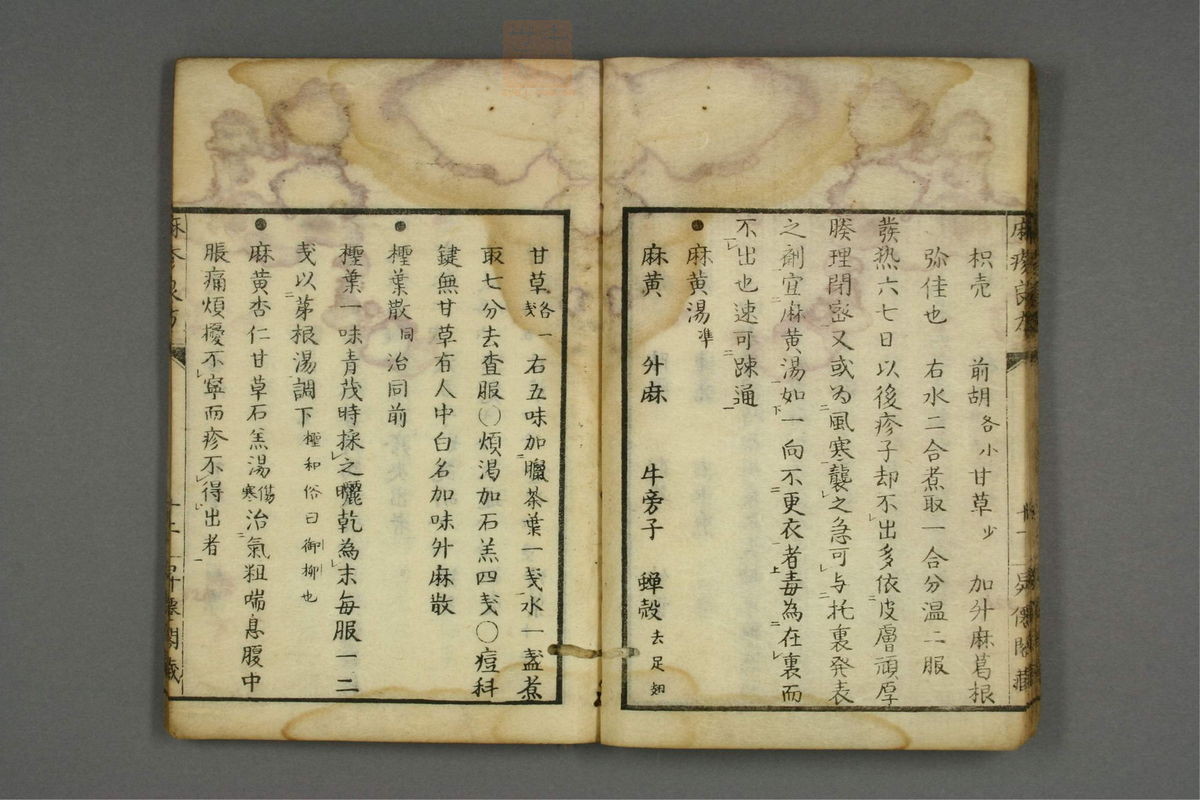 枳売 前胡各小 甘草少 加升麻葛根
弥佳也 右水二合煮取一合分温二服
発熱六七日以後疹子却不出多依皮膚頑厚
腠理閉密又或為風寒襲之急可与托裏発表
之剤宜麻黄湯如一向不更衣者毒為在裏而
不出也速可疎通
麻黄湯準
麻黄 升麻 牛旁子 蝉殻去足翅
甘草各一戔 右五味加臘茶葉一戔水一盞煮
取七分去査服〇煩渇加石羔四戔〇痘科
鍵無甘草有人中白名加味升麻散
檉葉散同 治同前
檉葉一味青茂時採之曬乾為末毎服一二
戔以茅根湯調下檉和俗曰御柳也
麻黄杏仁甘草石羔湯傷寒 治気粗喘息腹中
脹痛煩擾不寧而疹不得出者